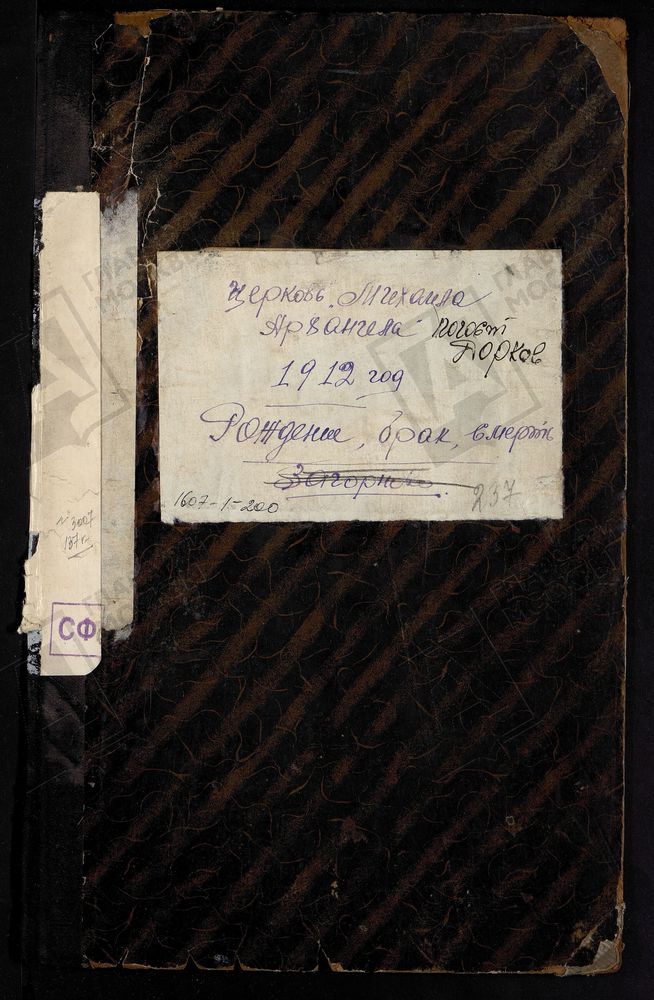 церковь Михаила
Архангела погост
Порков
1912 год
Рождение, брак, смерть
Загорно
1607-1-200
237
№ 3007
187 л
СФ